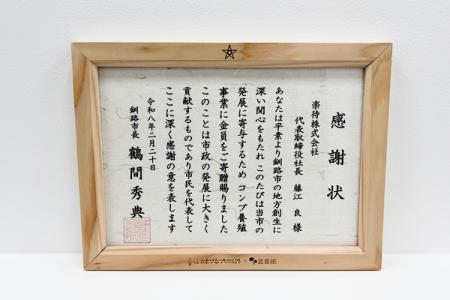 感謝状
楽待株式会社
代表取締役社長 藤江 良 様
あなたは平素より釧路市の地方創生に
深い関心をもたれ このたびは当市の
発展に寄与するため コンブ養殖
事業に金員をご寄贈賜りました
このことは市政の発展に大きく
貢献するものであり市民を代表して
ここに深く感謝の意を表します
令和八年二月二十日
釧路市長 鶴間秀典